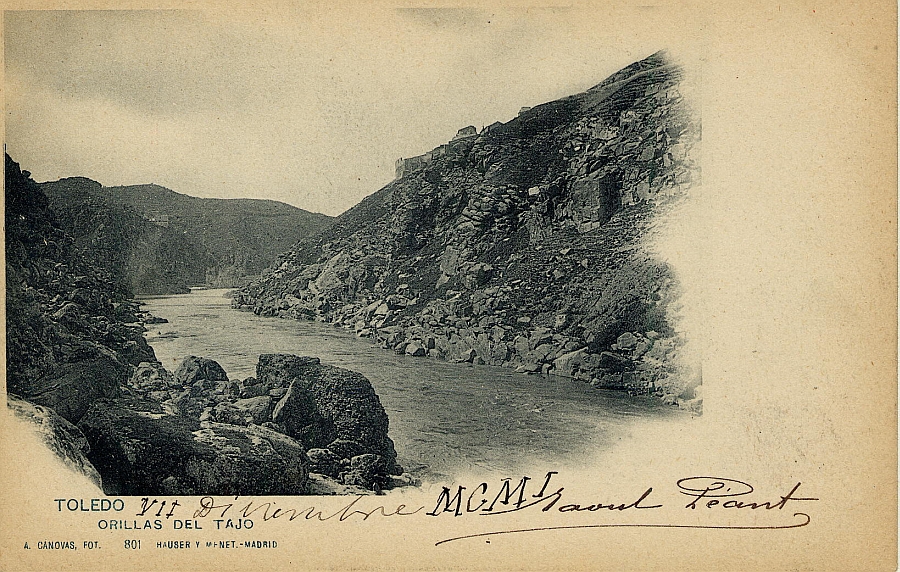 TOLEDO VII Décembre MCMI Raoul Péant
ORILLAS DEL TAJO
A. CANOVAS, FOT. 801 HAUSER Y MENET.-MADRID